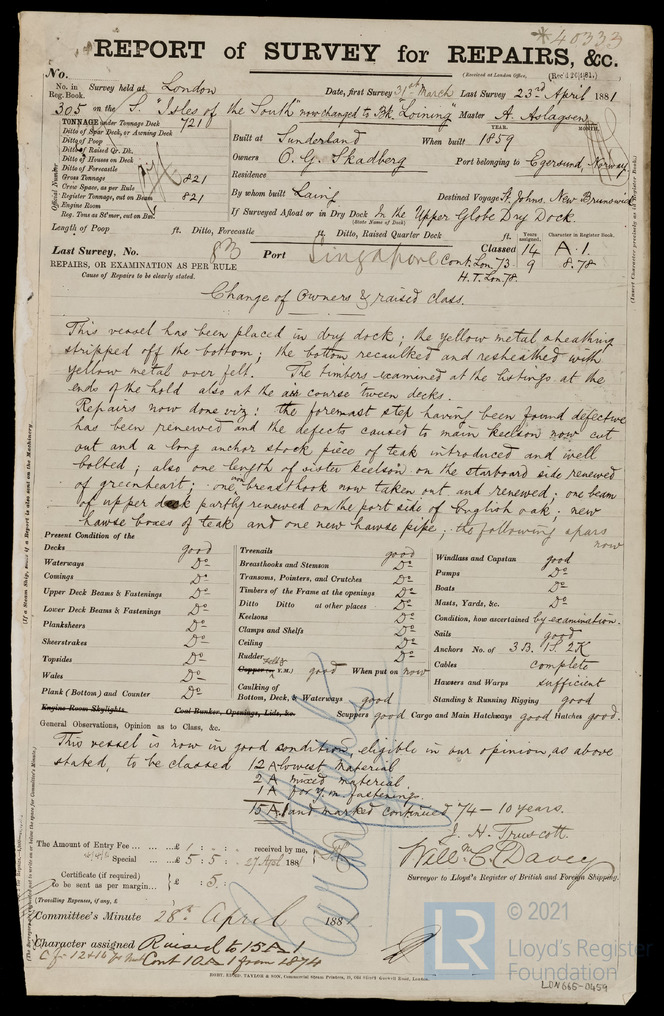 *40333
REPORT of SURVEY for REPAIRS, &c.
No.
(Received at London Office,
No. in Reg. Book. Survey held at London Date, first Survey 31st March Last Survey 23rd April 1881
305 on the S. "Isles of the South" now changed to Bk. "Loining" Master A. Aslagsen
TONNAGE under Tonnage Deck 721
Ditto of Spar Deck, or Awning Deck
Ditto of Poop
Ditto of Raised Qr. Dk.
Ditto of Houses on Deck
Ditto of Forecastle
Gross Tonnage 821
Crew Space, as per Rule
Register Tonnage, out on Beam 821
Engine Room
Reg. Tons as St'mer, cut on Beam
Official Number
YEAR. MONTH.
Built at Sunderland When built 1859
Owners O. G. Skadberg Port belonging to Egersund, Norway
Residence
By whom built Laing Destined Voyage St. Johns. New Brunswick
If Surveyed Afloat or in Dry Dock In the Upper Globe Dry Dock.
(State Name of Dock)
Length of Poop ft. Ditto, Forecastle ft. Ditto, Raised Quarter Deck ft.
Years assigned. Character in Register Book.
Last Survey, No. 83 Port Singapore Classed 14 A.1.
Cont. Lon. 73 9 8.78
H.T. Lon. 78.
REPAIRS, OR EXAMINATION AS PER RULE
Cause of Repairs to be clearly stated.
Change of Owners & raised class.
This vessel has been placed in dry dock; the yellow metal sheathing
stripped off the bottom; the bottom recaulked and resheathed with
yellow metal over felt. The timbers examined at the listings at the
ends of the hold also at the air course tween decks.
Repairs now done viz: the foremast step having been found defective
has been renewed and the defects caused to main keelson now cut
out and a long anchor stock piece of teak introduced and well
bolted; also one length of sister keelson on the starboard side renewed
of greenheart; one breasthook now taken out and renewed; one beam
of upper deck partly renewed on the port side of English oak; new
hawse boxes of teak and one new hawse pipe; the following spars
now
Present Condition of the
Decks good
Waterways Do
Comings Do
Upper Deck Beams & Fastenings Do
Lower Deck Beams & Fastenings Do
Planksheers Do
Sheerstrakes Do
Topsides Do
Wales Do
Plank (Bottom) and Counter Do
Engine Room Skylights Coal Bunker, Openings, Lids, &c.
Treenails good
Breasthooks and Stemson Do
Transoms, Pointers, and Crutches Do
Timbers of the Frame at the openings Do
Ditto Ditto at other places Do
Keelsons Do
Clamps and Shelfs Do
Ceiling Do
Rudder Do
Copper (or Y.M.) good When put on now
Caulking of Bottom, Deck, & Waterways good
Scuppers good Cargo and Main Hatchways good Hatches good.
Windlass and Capstan good
Pumps Do
Boats Do
Masts, Yards, &c. Do
Condition, how ascertained by examination.
Sails good
Anchors No. of 3B. 1S. 2K
Cables complete
Hawsers and Warps sufficient
Standing & Running Rigging good
General Observations, Opinion as to Class, &c.
This vessel is now in good condition, eligible in our opinion, as above
stated, to be classed 12 A lowest material
2 A mixed material.
1 A for y.m. fastenings.
15 A1 and marked continued 74 – 10 years.
J. H. Truscott.
Willm C Davey
Surveyor to Lloyd's Register of British and Foreign Shipping.
The Amount of Entry Fee ... £ 1 : : received by me,
Special ... £ 5 : 5 : 27 April 1881
Certificate (if required) to be sent as per margin... £ : 5 :
(Travelling Expenses, if any, £
Committee's Minute 28th April 1881
Character assigned Raised to 15 A 1
Cont 10 A 1 from 1874
(If a Steam Ship, state if a Report is also sent on the Machinery
(Insert Character precisely as in Register Book.)
© 2021
LR
Lloyd's Register
Foundation
LON665-0459